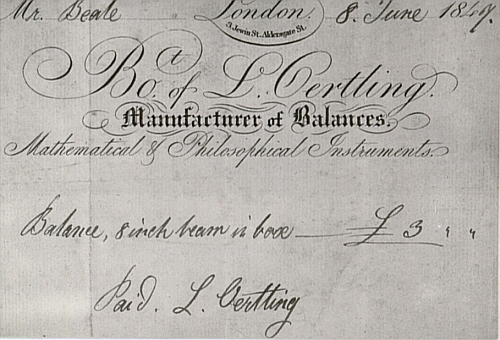 Mr. Beale London. 8. June 1849.
3 Jewin St. Aldersgate St.
Bot. of L. Oertling.
Manufacturer of Balances.
Mathematical & Philosophical Instruments.
Balance, 8 inch beam in box £ 3 " "
Paid. L. Oertling